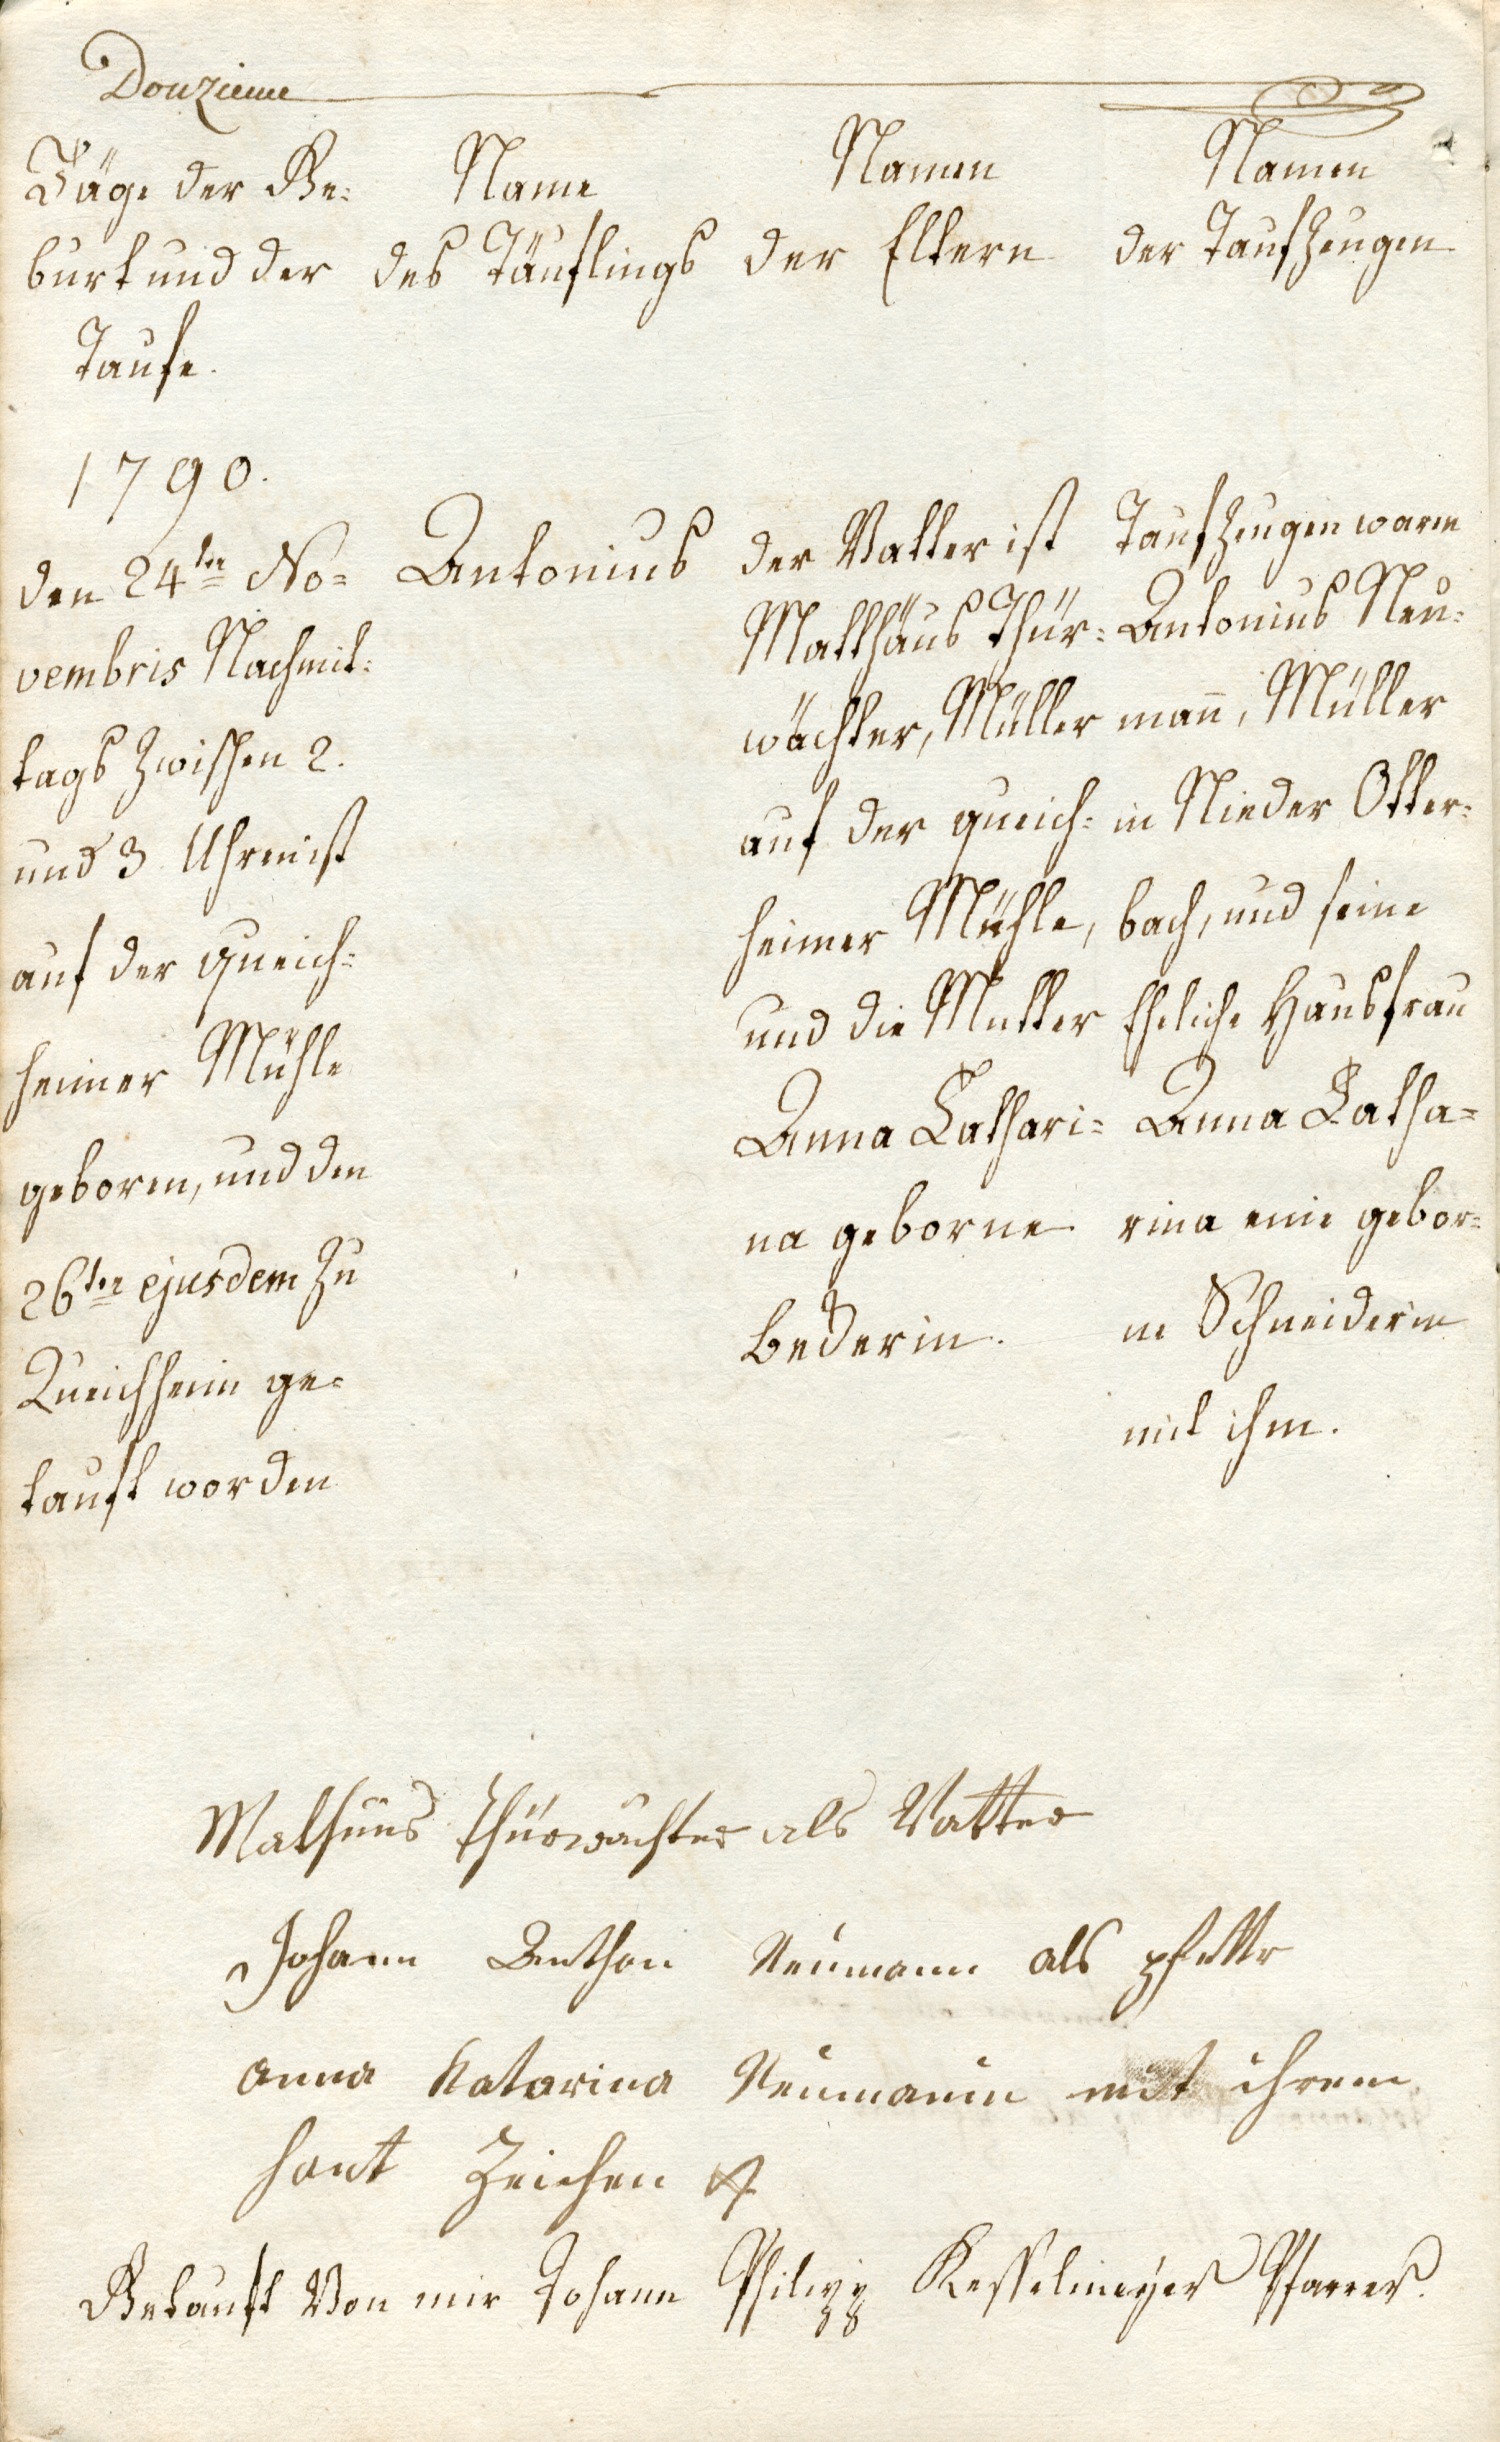 Douzieme
Täge der Ge=
burt und der
Taufe.
Name
des Täuflings
Namen
der Eltern
Namen
der Taufzeugen
1790.
den 24ten No=
vembris Nachmit=
tags zwischen 2.
und 3 Uhren ist
auf der queich=
heimer Mühle
geboren, und den
26ten ejusdem zu
Queichheim ge=
tauft worden
Antonius
der Vatter ist
Matthäus Thür=
wächter, Müller
auf der queich=
heimer Mühle,
und die Mutter
Anna Cathari=
na geborne
Bederin.
Taufzeugen waren
Antonius Neu=
man̄, Müller
in Nieder Otter=
bach, und seine
Eheliche Hausfrau
Anna Catha=
rina eine gebor=
ne Schneiderin
mit ihm.
Mathäus Thürwächter als Vatter
Johann Anthon Neumann als pfettr
anna Katarina Neumanin mit ihrem
hant Zeichen
Getauft Von mir Johann Philipp Kesselmeyer Pfarrer.